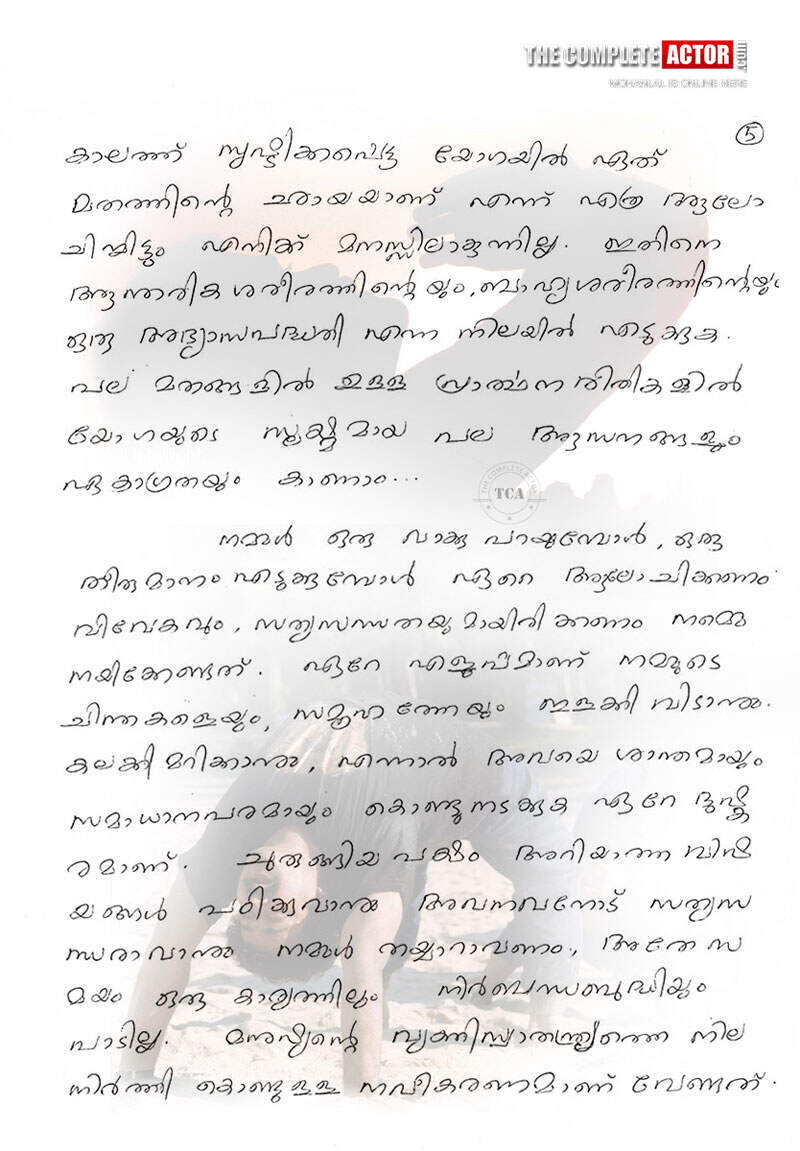 THE COMPLETE ACTOR
MOHANLAL IS ONLINE HERE
5
കാലത്ത് സൃഷ്ടിക്കപ്പെട്ട യോഗയിൽ ഏത്
മതത്തിന്റെ ഛായയാണ് എന്ന് എത്ര ആലോ
ചിച്ചിട്ടും എനിക്ക് മനസ്സിലാകുന്നില്ല. ഇതിനെ
ആന്തരിക ശരീരത്തിന്റെയും, ബാഹ്യശരീരത്തിന്റെയും
ഒരു അഭ്യാസപദ്ധതി എന്ന നിലയിൽ എടുക്കുക.
പല മതങ്ങളിൽ ഉള്ള പ്രാർത്ഥന രീതികളിൽ
യോഗയുടെ സൂക്ഷ്മമായ പല ആസനങ്ങളും
ഏകാഗ്രതയും കാണാം...
THE COMPLETE ACTOR
TCA
നമ്മൾ ഒരു വാക്കു പറയുമ്പോൾ, ഒരു
തീരുമാനം എടുക്കുമ്പോൾ ഏറെ ആലോചിക്കണം
വിവേകവും, സത്യസന്ധതയുമായിരിക്കണം നമ്മെ
നയിക്കേണ്ടത്. ഏറേ എളുപ്പമാണ് നമ്മുടെ
ചിന്തകളെയും, സമൂഹത്തേയും ഇളക്കി വിടാനും.
കലക്കിമറിക്കാനും, എന്നാൽ അവയെ ശാന്തമായും
സമാധാനപരമായും കൊണ്ടുനടക്കുക ഏറേ ദുഷ്ക
രമാണ്. ചുരുങ്ങിയ പക്ഷം അറിയാത്ത വിഷ
യങ്ങൾ പഠിക്കുവാനും അവനവനോട് സത്യസ
ന്ധരാവാനും നമ്മൾ തയ്യാറാവണം, അതേ സ
മയം ഒരു കാര്യത്തിലും നിർബന്ധബുദ്ധിയും
പാടില്ല. മനുഷ്യന്റെ വ്യക്തിസ്വാതന്ത്ര്യത്തെ നില
നിർത്തി കൊണ്ടുള്ള നവീകരണമാണ് വേണ്ടത്.